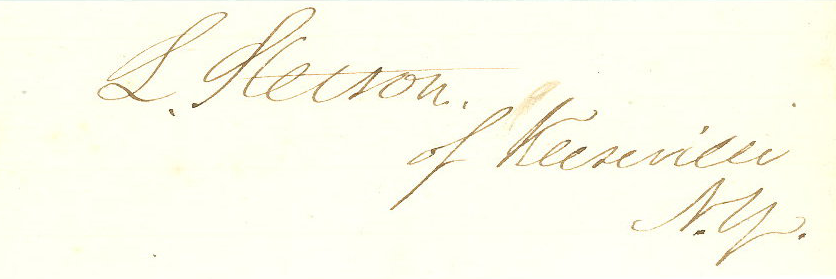 L. Stetson.
of Keeseville
N.Y.